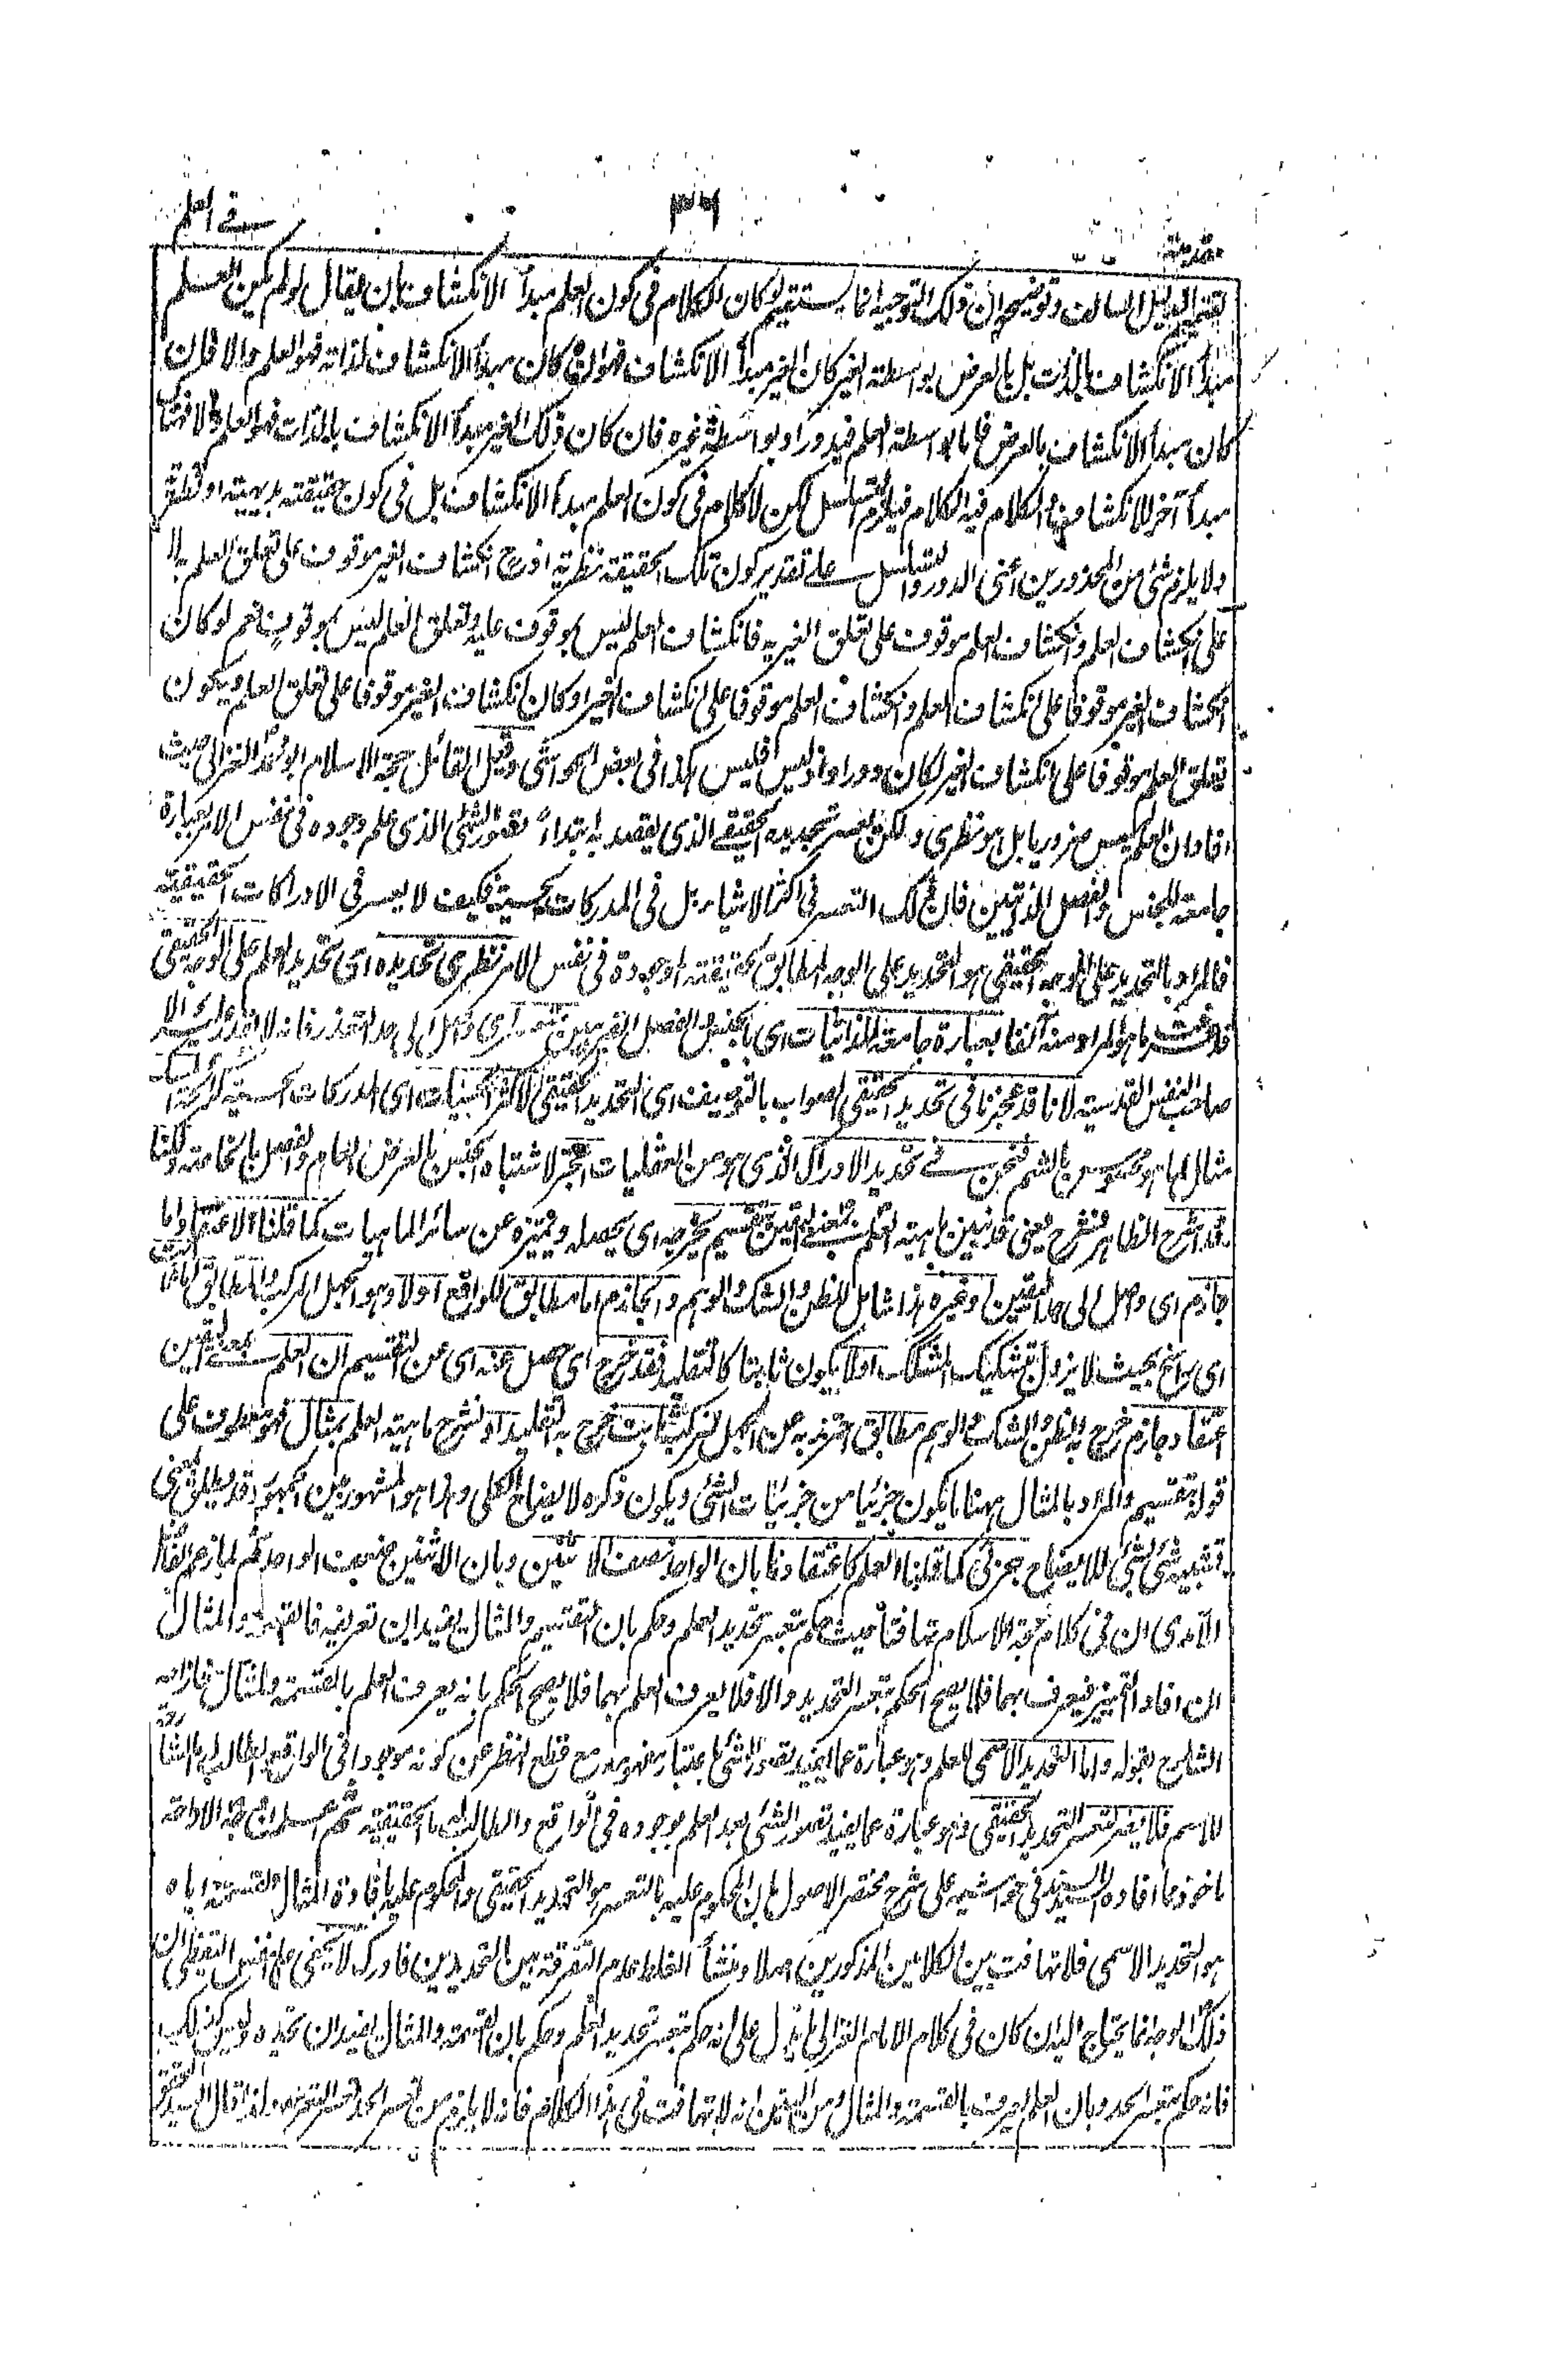 في العلم
٣٦
مقدمة
الدليل السالف وتوضيحه ان ذلك التوجيه انما يستقيم لو كان الكلام في كون العلم مبدأ الانكشاف بان يقال لو لم يكن العلم
مبدأ الانكشاف بالذات بل بالعرض بواسطة الغير كان الغير مبدأ الانكشاف فهو ان كان مبدأ الانكشاف لذاته فهو العلم والا فان
كان مبدأ الانكشاف بالعرض فاما بواسطة العلم فيدور او بواسطة غيره فان كان ذلك الغير مبدأ الانكشاف بالذات فهو العلم والا
مبدأ آخر للانكشاف والكلام فيه الكلام فيلزم التسلسل لكن لا كلام في كون العلم مبدأ الانكشاف بل في كون حقيقته بديهية او نظرية
ولا يلزم شئ من المحذورين اعني الدور والتسلسل على تقدير كون تلك الحقيقة نظرية اذ ح انكشاف الغير موقوف على تعلق العلم به لا
على انكشاف العلم وانكشاف العلم موقوف على تعلق الغير به فانكشاف العلم ليس بموقوف عليه وتعلق العلم ليس بموقوف نعم لو كان
انكشاف الغير موقوفا على انكشاف العلم وانكشاف العلم موقوفا على انكشاف الغير او كان انكشاف الغير موقوفا على تعلق العلم ويكون
تعلق العلم موقوفا على انكشاف الغير لكان دورا واذ ليس فليس هكذا في بعض الحواشي وقيل القائل حجة الاسلام ابو محمد الغزالي حيث
افاد ان العلم ليس ضروريا بل هو نظري ولكن تعسر تحديده الحقيقي الذي يقصد به ابتداء تصور الشئ الذي علم وجوده في نفس الامر بعبارة
جامعة للجنس والفصل الذاتيين فان ذلك التعسر في اكثر الاشياء بل في المدركات الحسية فكيف لا يعسر في الادراكات الحقيقية
فالمراد بالتحديد على الوجه الحقيقي هو التحديد على الوجه المطابق لحقيقته الموجودة في نفس الامر نظري تحديده اى تحديد العلم على الوجه الحقيقي
ما هو المراد منه آنفا بعبارة جامعة للذاتيات اى بالجنس والفصل القريبين متعسر اى وصل الى حد التعذر فانه لا يقدر عليه الا
صاحب النفس القدسية لانا قد عجزنا في تحديد الحقيقي الصواب بالتوصيف اى التحديد الحقيقي لاكثر الحسيات اى المدركات الحسية كرائحة المسك
مثال لما هو محسوس بالشم فنحن في تحديد الادراك الذي هو من العقليات اعجز لاشتباه الجنس بالعرض العام والفصل بالخاصة ولكنا
نقدر الشرح الظاهر فنشرح يعني قد نبين ماهية العلم بمعنى اليقين بتقسيم يخرجه اى يحصله ويميزه عن سائر الماهيات كما قلنا الاعتقاد اما
جازم اى وصل الى حد اليقين او غيره هذا شامل للظن والشك والوهم والجازم اما مطابق للواقع او لا وهو الجهل المركب والمطابق اما ثابت
اى راسخ بحيث لا يزول بتشكيك المشكك او لا يكون ثابتا كالتقليد فقد خرج اى حصل عنه اى عن التقسيم ان العلم بمعنى اليقين
اعتقاد جازم خرج به الظن والشك والوهم مطابق احترز به عن الجهل المركب ثابت خرج به التقليد او نشرح ماهية العلم بمثال فهو معطوف على
قوله بتقسيم والمراد بالمثال ههنا ما يكون جزئيا من جزئيات الشئ ويكون ذكره لايضاح الكلي وهذا هو المشهور بين الجمهور وقد يطلق
تشبيه شئ بشئ للايضاح جزئي كما قلنا العلم كاعتقادنا بان الواحد نصف الاثنين وبان الاثنين ضعف الواحد ثم لما زعم الفاضل
الآمدي ان في كلام حجة الاسلام تهافتا حيث حكم بتعسر تحديد العلم وحكم بان التقسيم والمثال يفيدان تعريفه فالقسمة والمثال
ان افادا التمييز فيعرف بهما فلا يصح الحكم بتعسر التحديد والا فلا يعرف العلم بهما فلا يصح الحكم بانه يعرف العلم بالقسمة والمثال فازاحه
الشارح بقوله واما التحديد الاسمى للعلم وهو عبارة عما يفيد تصور الشئ باعتبار مفهومه مع قطع النظر عن كونه موجودا في الواقع والطالب له ما الشارحة
للاسم فلا يعسر التحديد الحقيقي وهو عبارة عما يفيد تصور الشئ بعد العلم بوجوده في الواقع والطالب له ما الحقيقية ثم اعلم ان هذه الازاحة
ماخوذة مما افاده السيد السند في حواشيه على شرح مختصر الاصول بان المحكوم عليه بالتعسر هو التحديد الحقيقي والمحكوم عليه بافادة المثال والقسمة اياه
هو التحديد الاسمى فلا تهافت بين الكلامين المذكورين اصلا ومنشأ الغلط عدم التفرقة بين التحديدين فادرك لا يخفى على نفس التيقظ ان
ذلك الوجه انما يحتاج اليه ان كان في كلام الامام الغزالي ما يدل على انه حكم بتعسر تحديد العلم وحكم بان القسمة والمثال يفيدان تحديده وليس كذلك
فانه حكم بتعسر الحد وبان العلم يعرف بالقسمة والمثال ومن البين انه لا تهافت في هذا الكلام فانه لا يلزم من تعسر الحد تعسر التعريف ولذا قال السيد المحقق